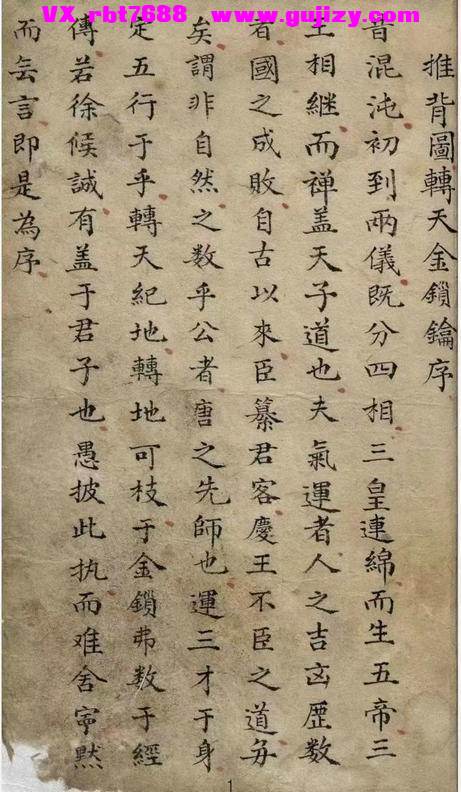 VX_rbt7688 www.gujizy.com
推背圖轉天金鎖鑰序
昔混沌初到兩儀既分四相三皇連綿而生五帝三
王相繼而禅盖天子道也夫氣運者人之吉凶歷數
者國之成敗自古以來臣纂君客慶王不臣之道毋
矣謂非自然之数乎公者唐之先師也運三才于身
定五行于乎轉天紀地轉地可枝于金鎖弗数于經
傳若徐候誠有盖于君子也愚披此执而难舍寜黙
而無言即是為序
1